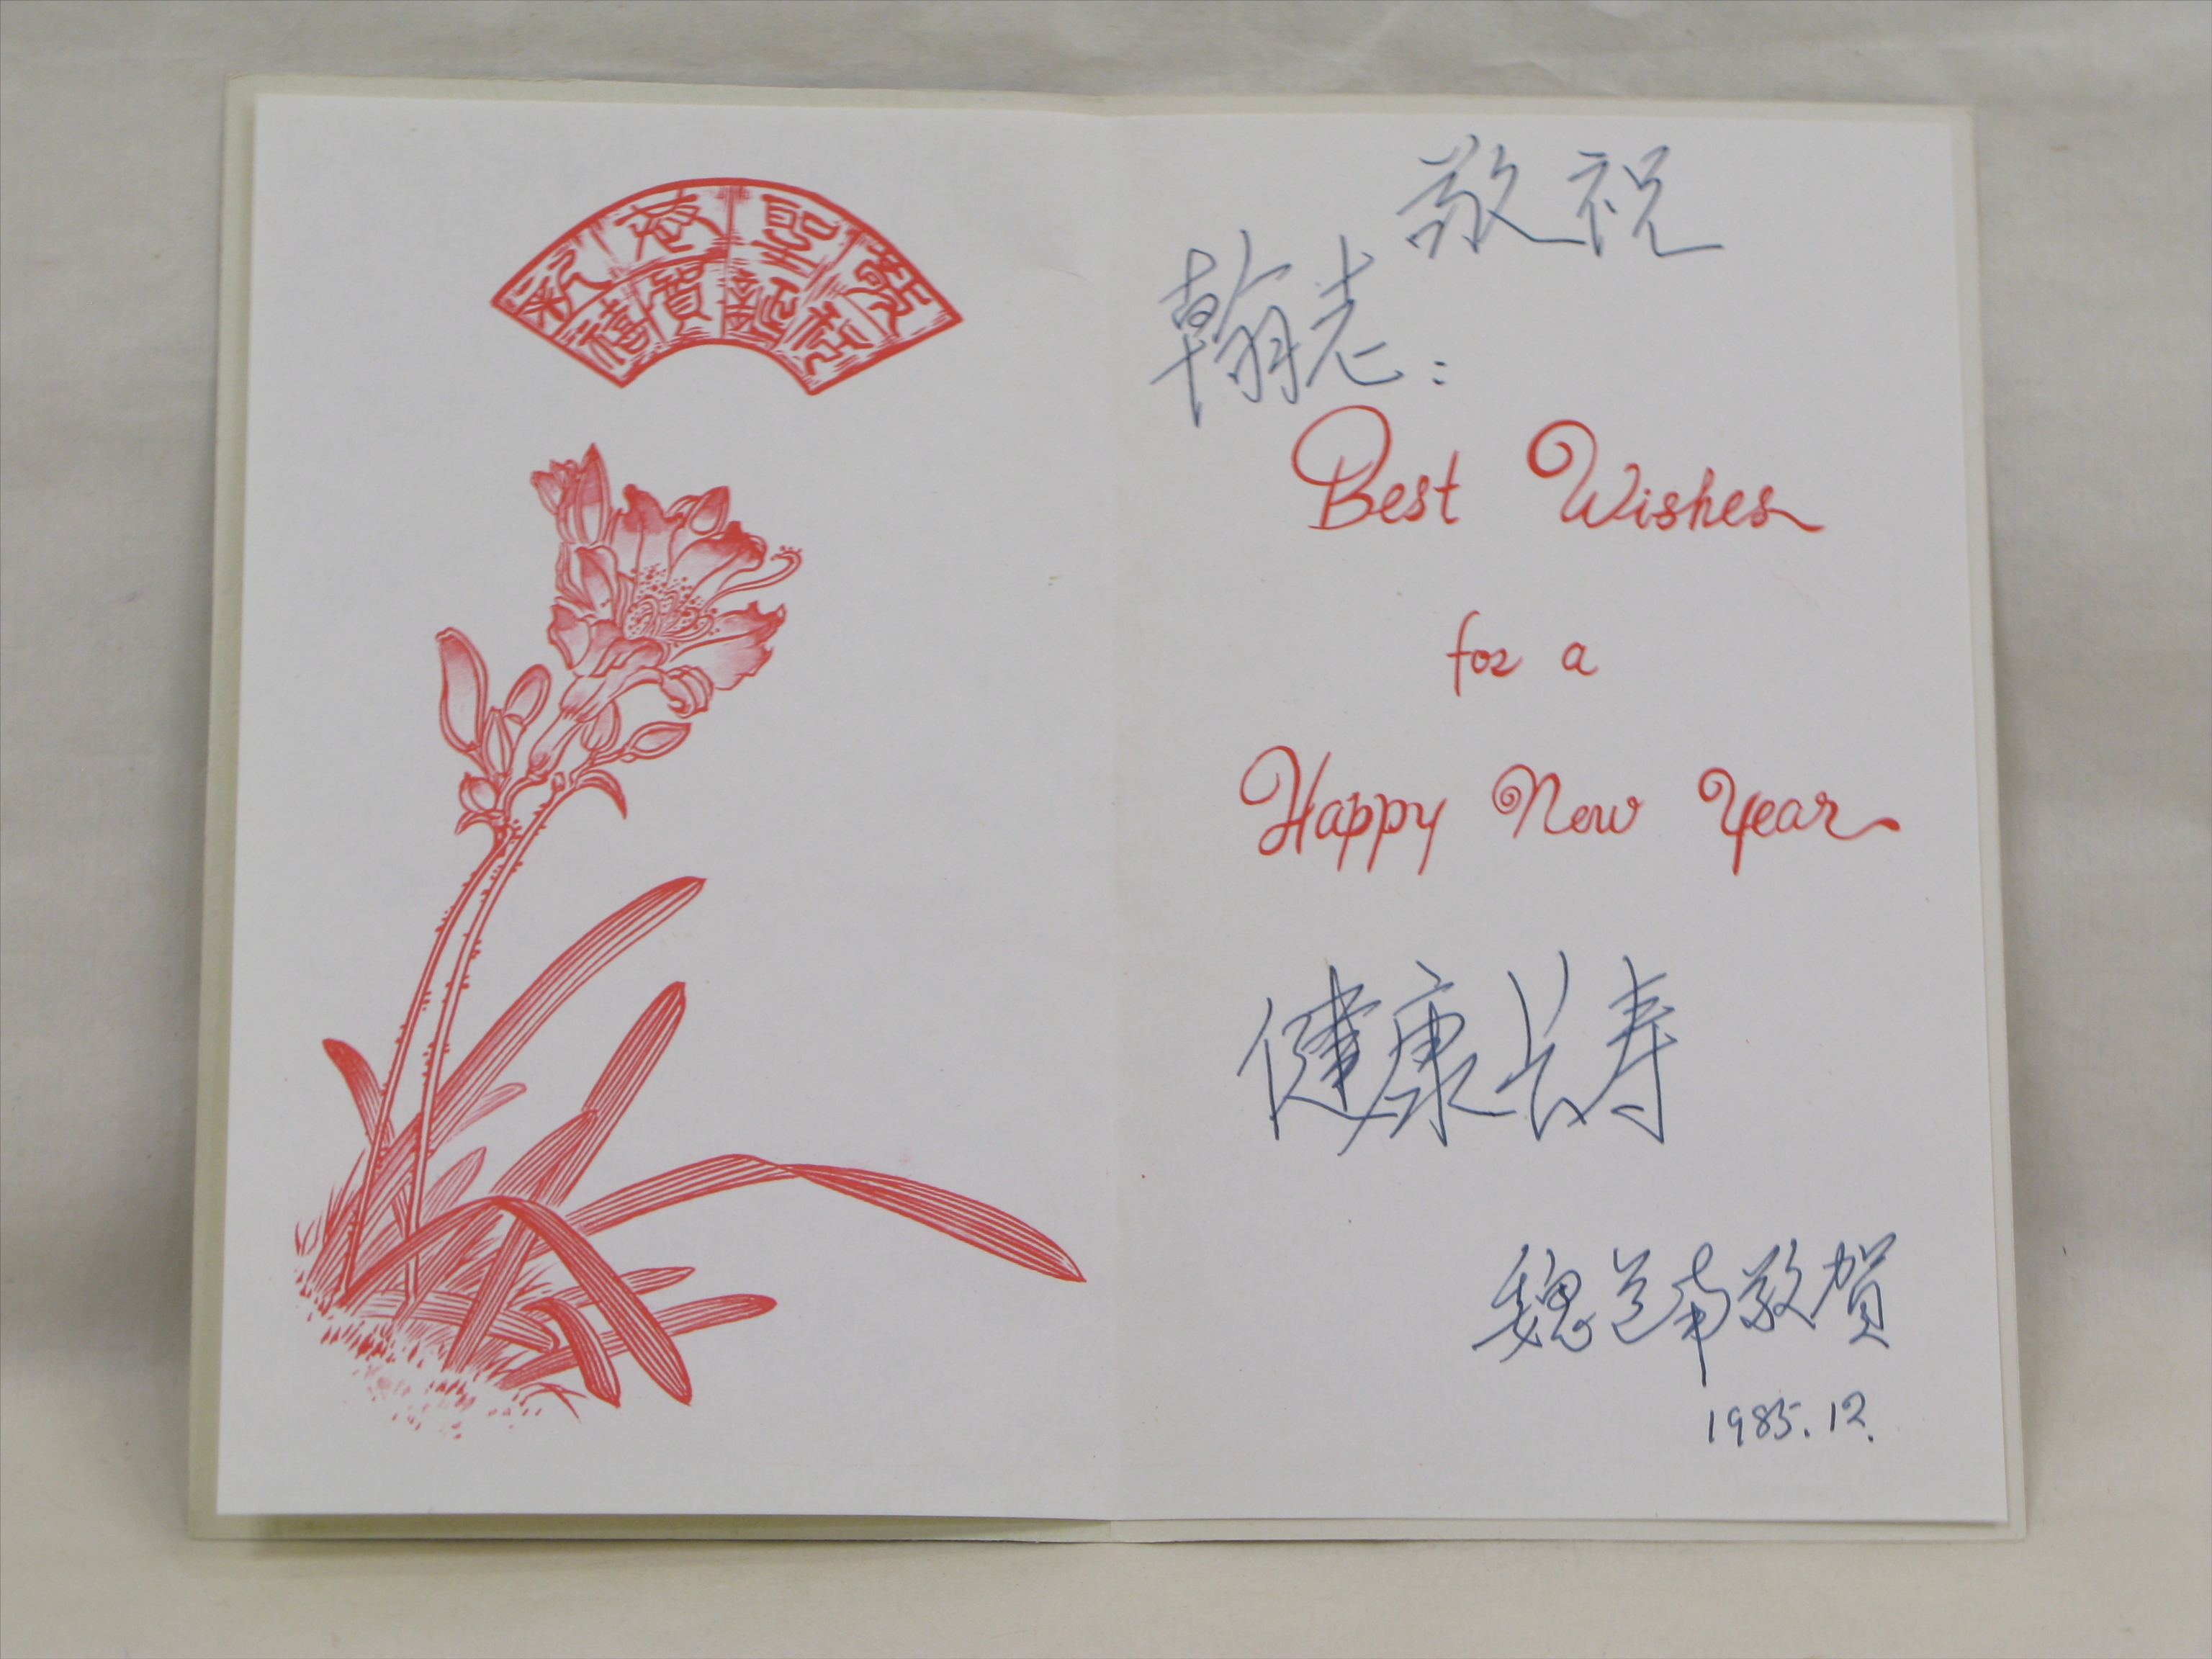 敬祝
聖誕
恭賀
新禧
敬祝
翰老:
Best Wishes
for a
Happy New Year
健康长寿
魏道南敬賀
1985.12.